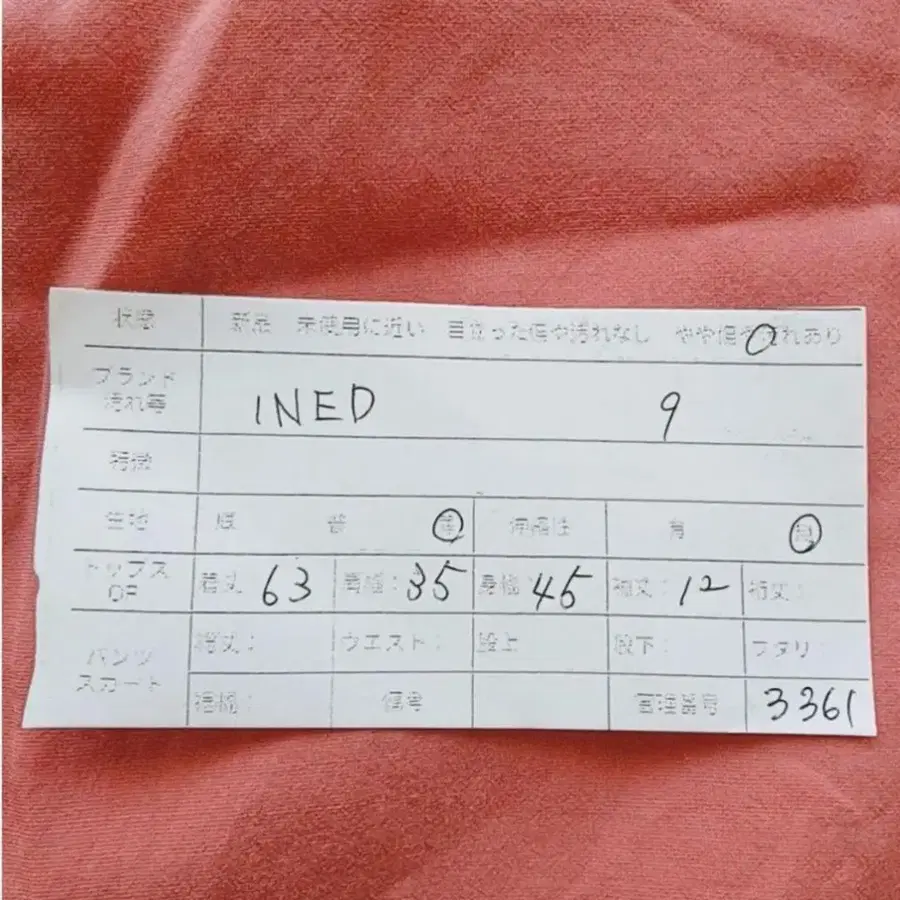 状態 新品 未使用に近い 目立った傷や汚れなし やや傷や汚れあり
ブランド
汚れ等 INED 9
特徴
生地 厚 普 薄 伸縮性 有 無
トップス
OP 着丈 63 肩幅: 35 身幅: 45 袖丈: 12 裄丈:
パンツ
スカート 総丈: ウエスト: 股上 股下: ワタリ:
裾幅: 備考 管理番号 3361